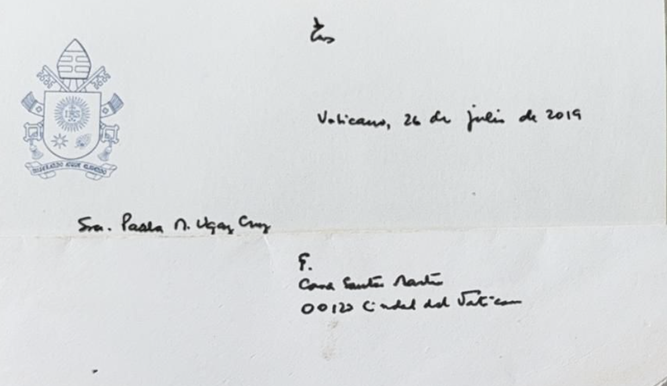 IHS
MISERANDO ATQUE ELIGENDO
Vaticano, 26 de julio de 2019
Sra. Paola M. Ugaz Cruz
F.
Casa Santa Marta
00120 Ciudad del Vaticano